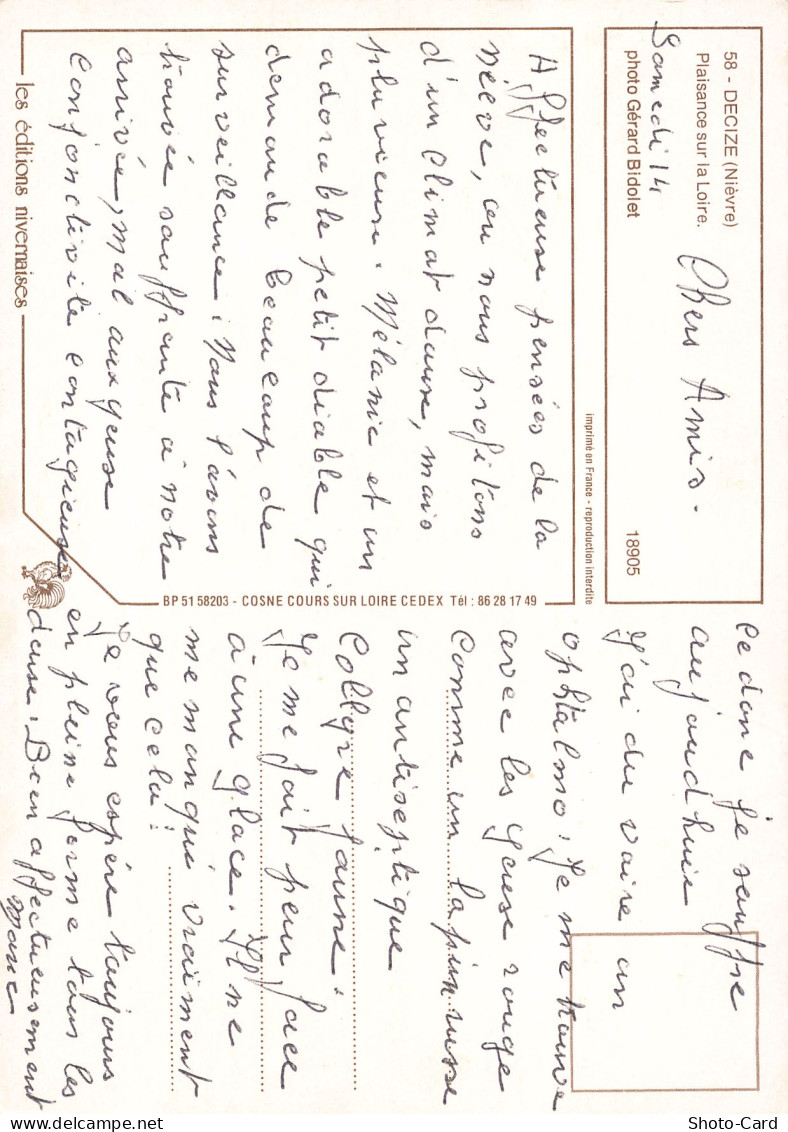 58 - DECIZE (Nièvre)
Plaisance sur la Loire.
photo Gérard Bidolet
18905
Samedi 14
Chers Amis.
imprimé en France - reproduction interdite
Affectueuse pensées de la
nièvre, ou nous profitons
d'un climat douse, mais
pluvieuse. Mélanie et un
adorable petit diable qui
demande beaucoup de
surveillance. Nous l'avons
trouvée souffrante à notre
arrivée, mal aux yeuse
Conjonctivite contagieuse
les éditions nivernaises
BP 51 58203 - COSNE COURS SUR LOIRE CEDEX Tél : 86 28 17 49
ce donc je souffre
aujourdhuie
J'ai du voire un
ophtalmo. Je me trouve
avec les yeuse rouge
comme un lapin russe
un antiseptique
Collyre jaune.
Je me fait peur face
à une glace. Il ne
me manqué vraiment
que cela!
Je vous espère toujours
en pleine forme tous les
deuse. Bien affectueusement
Shoto-Card